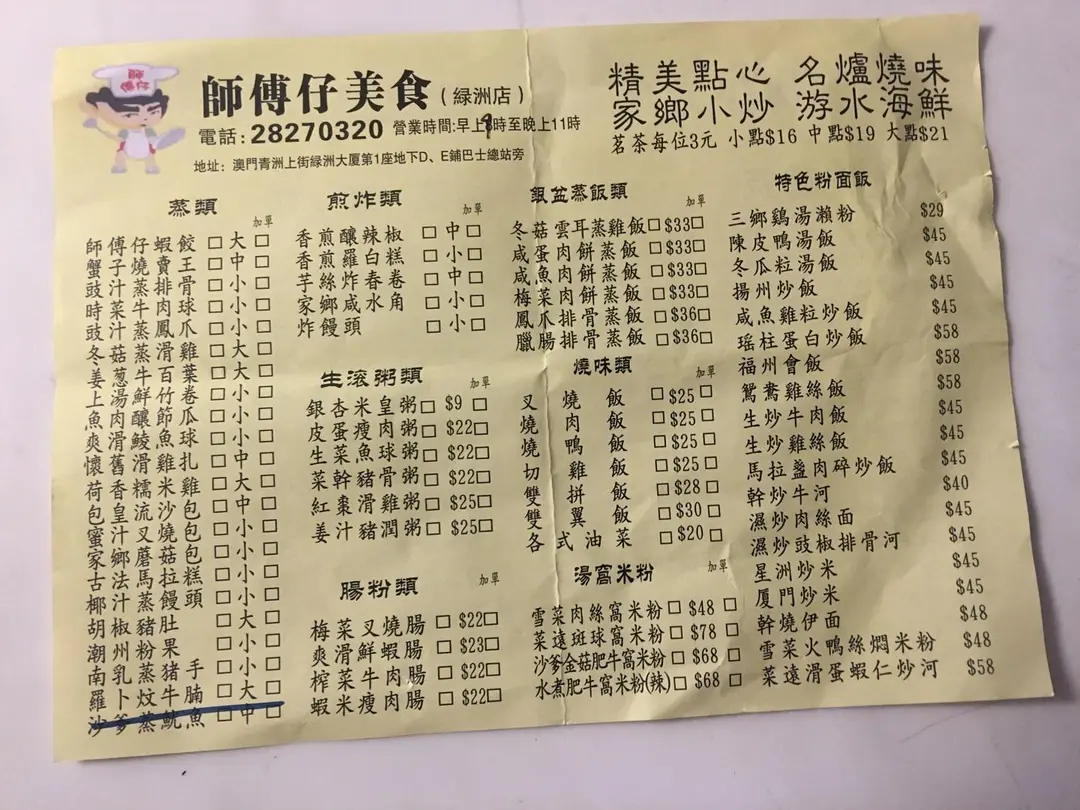 師傅仔
師傅仔美食(綠洲店)
電話:28270320 營業時間:早上8時至晚上11時
地址：澳門青洲上街綠洲大廈第1座地下D、E鋪巴士總站旁
精美點心 名爐燒味
家鄉小炒 游水海鮮
茗茶每位3元 小點$16 中點$19 大點$21
蒸類
加單
師傅仔蝦餃 □ 大 □
蟹子燒賣王 □ 中 □
豉汁蒸排骨 □ 小 □
時菜牛肉球 □ 小 □
豉汁蒸鳳爪 □ 小 □
冬菇蒸滑雞 □ 大 □
姜葱牛百葉 □ 大 □
上湯鮮竹卷 □ 小 □
魚肉釀節瓜 □ 小 □
爽滑鯪魚球 □ 小 □
懷舊滑雞扎 □ 中 □
荷香糯米雞 □ 大 □
包皇流沙包 □ 中 □
蜜汁叉燒包 □ 小 □
家鄉蘑菇包 □ 小 □
古法馬拉糕 □ 小 □
椰汁蒸饅頭 □ 小 □
胡椒豬肚 □ 大 □
潮州粉果 □ 小 □
南乳蒸豬手 □ 小 □
羅卜炆牛腩 □ 大 □
沙爹蒸魷魚 □ 中 □
煎炸類
加單
香煎釀辣椒 □ 中 □
香煎羅白糕 □ 小 □
芋絲炸春卷 □ 中 □
家鄉咸水角 □ 小 □
炸饅頭 □ 小 □
生滾粥類
加單
銀杏米皇粥 □ $9 □
皮蛋瘦肉粥 □ $22 □
生菜魚球粥 □ $22 □
菜幹豬骨粥 □ $22 □
紅棗滑雞粥 □ $25 □
姜汁豬潤粥 □ $25 □
腸粉類
加單
梅菜叉燒腸 □ $22 □
爽滑鮮蝦腸 □ $23 □
榨菜牛肉腸 □ $22 □
蝦米瘦肉腸 □ $22 □
銀盆蒸飯類
加單
冬菇雲耳蒸雞飯 □ $33 □
咸蛋肉餅蒸飯 □ $33 □
咸魚肉餅蒸飯 □ $33 □
梅菜肉餅蒸飯 □ $33 □
鳳爪排骨蒸飯 □ $36 □
臘腸排骨蒸飯 □ $36 □
燒味類
加單
叉燒飯 □ $25 □
燒肉飯 □ $25 □
燒鴨飯 □ $25 □
切雞飯 □ $25 □
雙拼飯 □ $28 □
雙翼飯 □ $30 □
各式油菜 □ $20 □
湯窩米粉
加單
雪菜肉絲窩米粉 □ $48 □
菜遠斑球窩米粉 □ $78 □
沙爹金菇肥牛窩米粉 □ $68 □
水煮肥牛窩米粉(辣) □ $68 □
特色粉面飯
加單
三鄉鷄湯瀨粉 $29
陳皮鴨湯飯 $45
冬瓜粒湯飯 $45
揚州炒飯 $45
咸魚雞粒炒飯 $45
瑤柱蛋白炒飯 $58
福州會飯 $58
鴛鴦雞絲飯 $58
生炒牛肉飯 $45
生炒雞絲飯 $45
馬拉盞肉碎炒飯 $45
幹炒牛河 $40
濕炒肉絲面 $45
濕炒豉椒排骨河 $45
星洲炒米 $45
厦門炒米 $45
幹燒伊面 $48
雪菜火鴨絲燜米粉 $48
菜遠滑蛋蝦仁炒河 $58